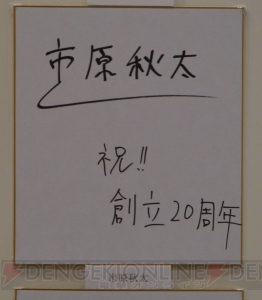 市原秋太
祝!!
創立20周年
市原秋太
DENGEKIONLINE